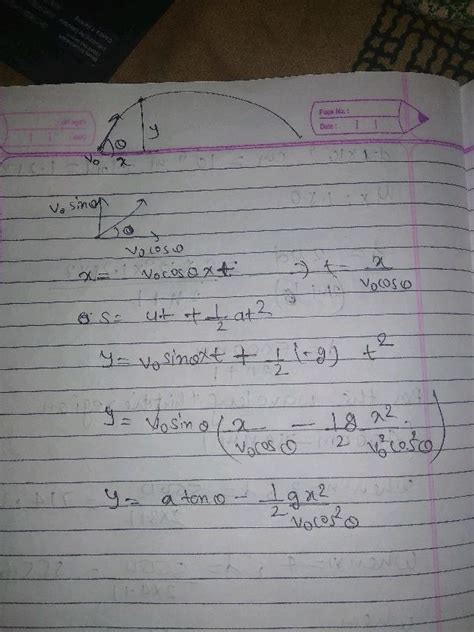 Page No. :
Date :
θ
y
v₀
x
v₀ sinθ
θ
v₀ cosθ
x = v₀cosθ × t ⇒ t = x/v₀cosθ
s = ut + 1/2 at²
y = v₀ sinθ × t + 1/2 (-g) t²
y = v₀ sinθ (x/v₀cosθ - 1/2 g x²/v₀²cos²θ)
y = a tanθ - 1/2 gx²/v₀cos²θ